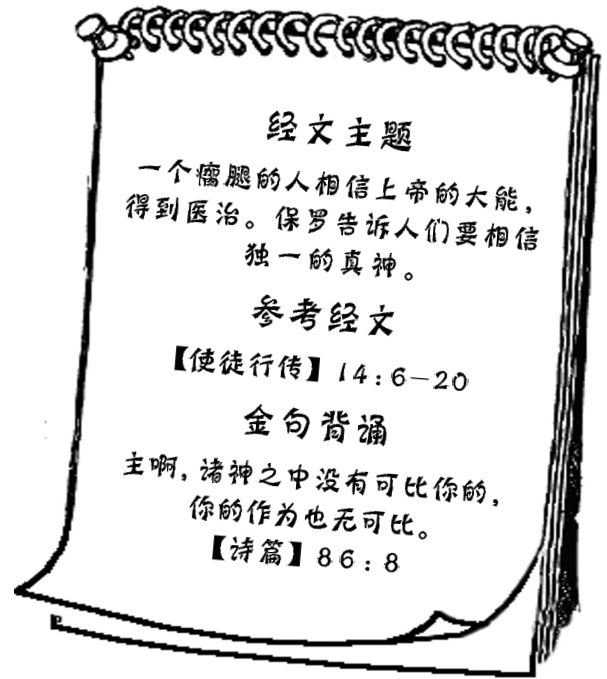 经文主题
一个瘸腿的人相信上帝的大能，
得到医治。保罗告诉人们要相信
独一的真神。
参考经文
【使徒行传】14：6－20
金句背诵
主啊，诸神之中没有可比你的，
你的作为也无可比。
【诗篇】86：8